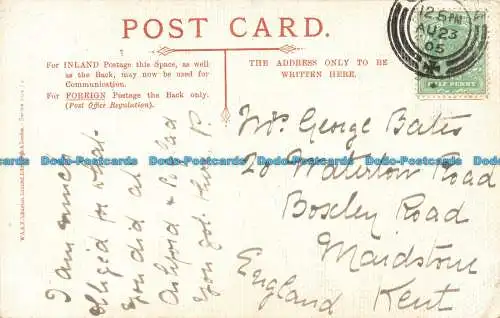 POST CARD.
For INLAND Postage this Space, as well
as the Back, may now be used for
Communication.
For FOREIGN Postage the Back only.
(Post Office Regulation).
THE ADDRESS ONLY TO BE
WRITTEN HERE.
12.5 PM
AU 23
05
HALF PENNY
Mr. George Bates
20 Waterlow Road
Boxley Road
Maidstone
Kent
England
I am
obliged for what
you did at
Ashford & so glad
you got there. P.
Dodo-Postcards Dodo-Postcards Dodo-Postcards Dodo-Postcards Dodo-Postcards